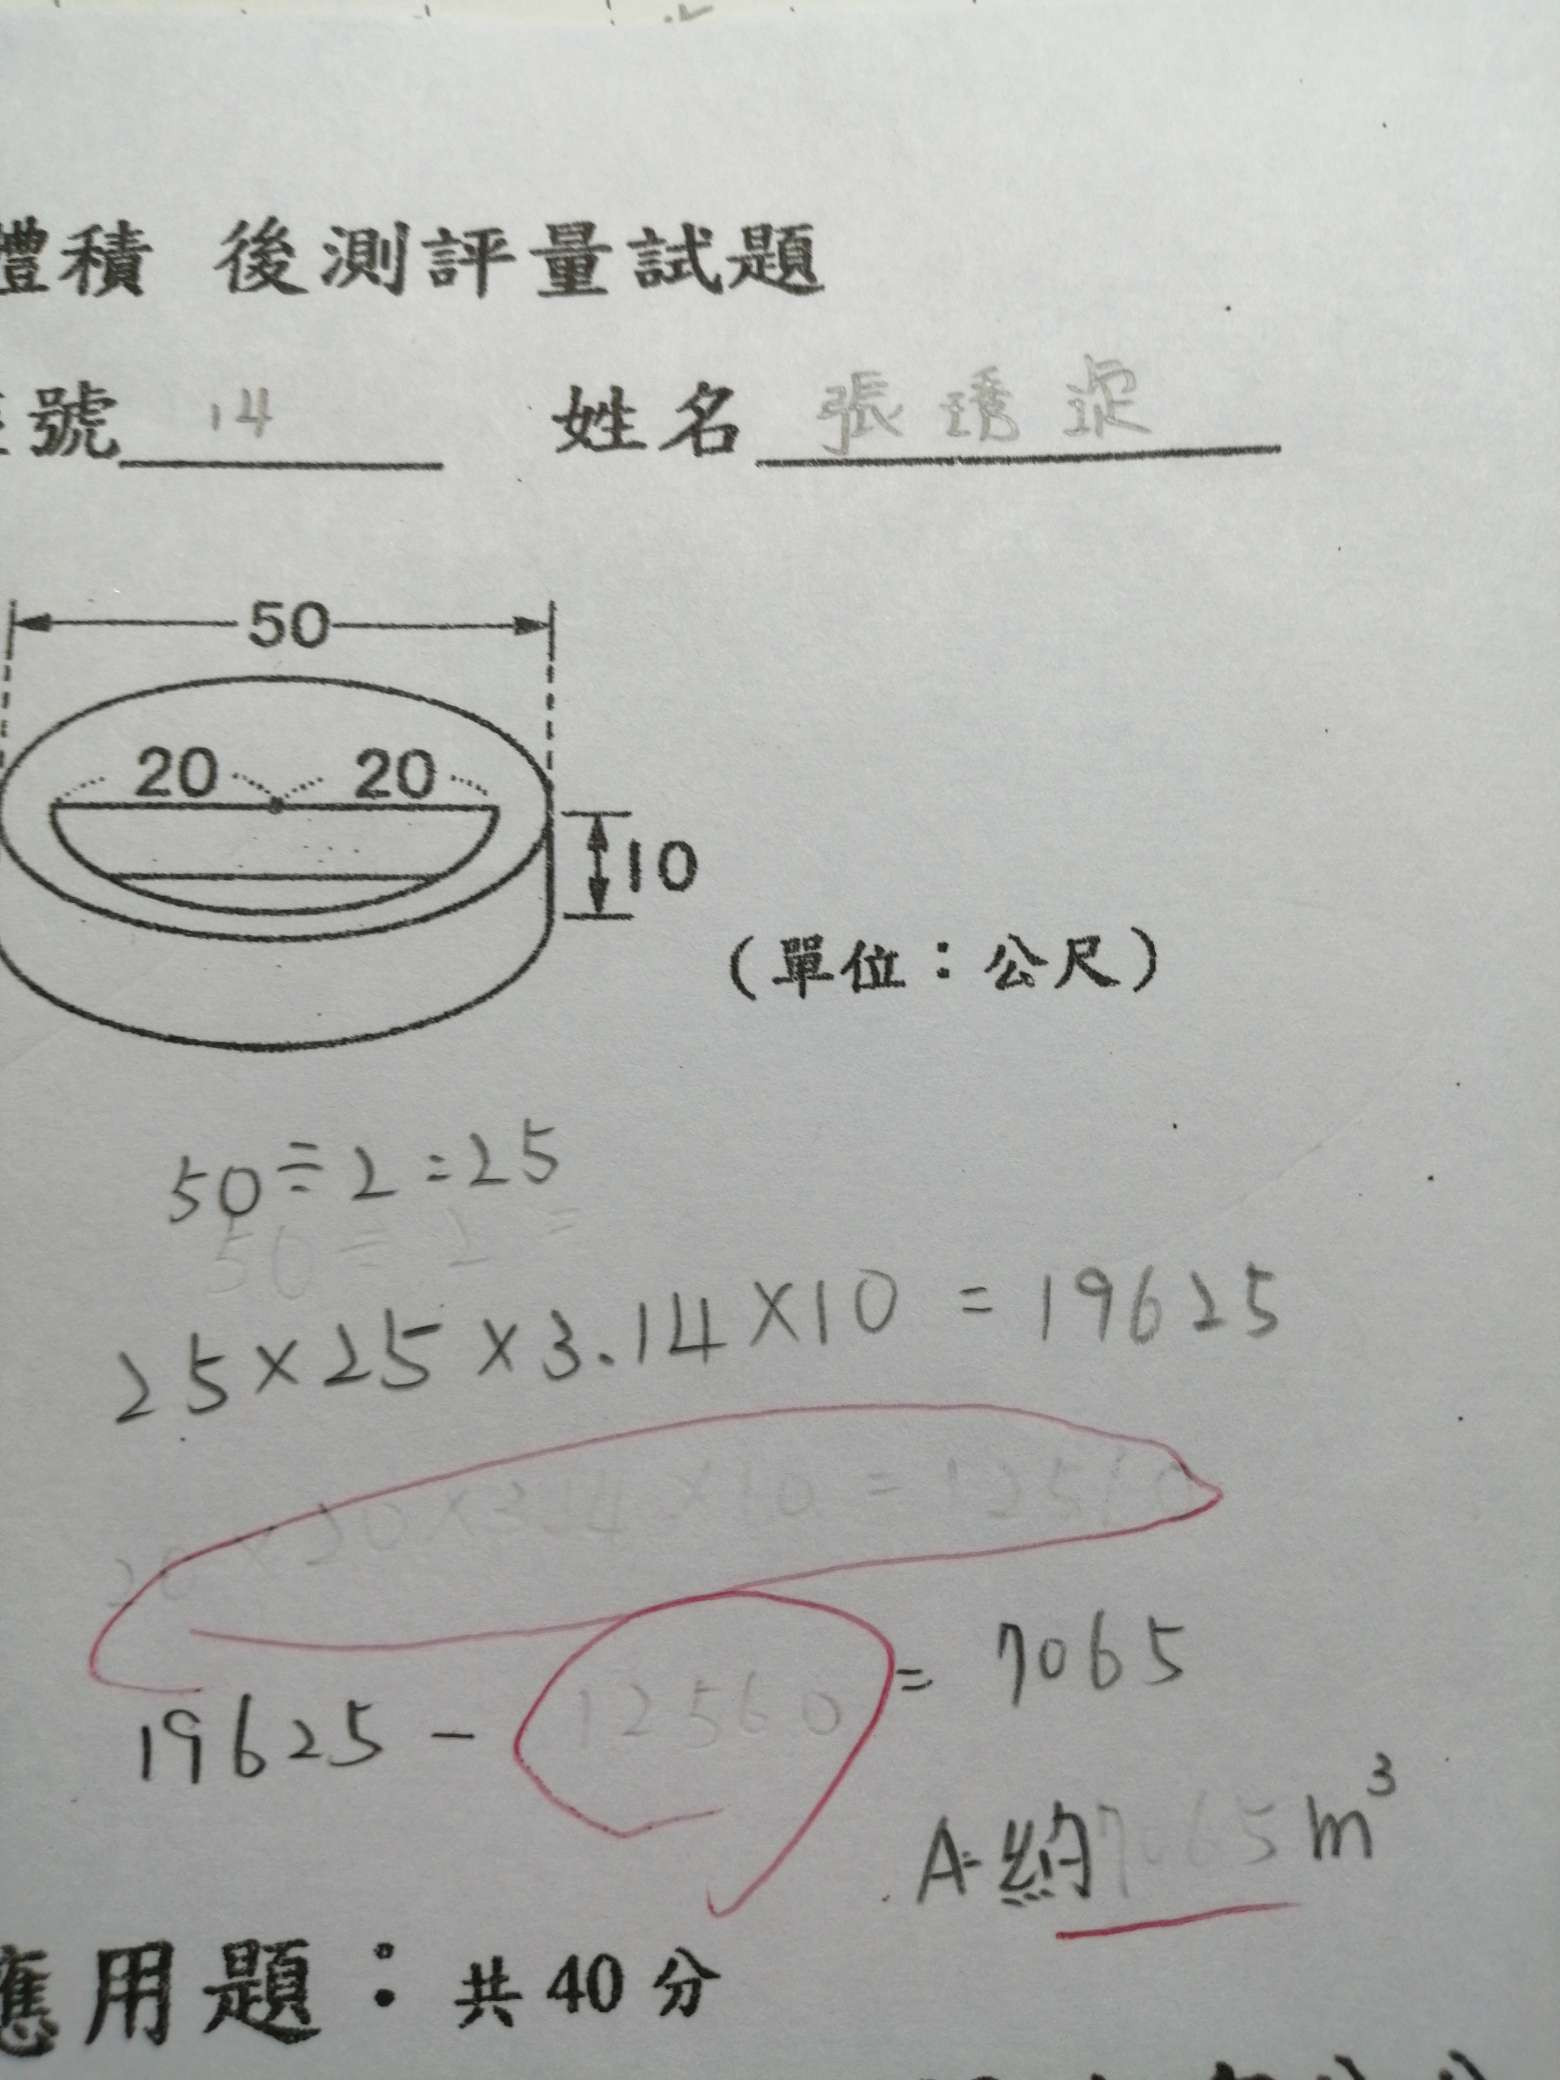 體積 後測評量試題
號 14 姓名 張琇
50
20 20
10
(單位：公尺)
50÷2=25
50÷2=
25×25×3.14×10=19625
20×20×3.14×10=12560
19625-12560=7065
A:約7065m³
應用題：共40分